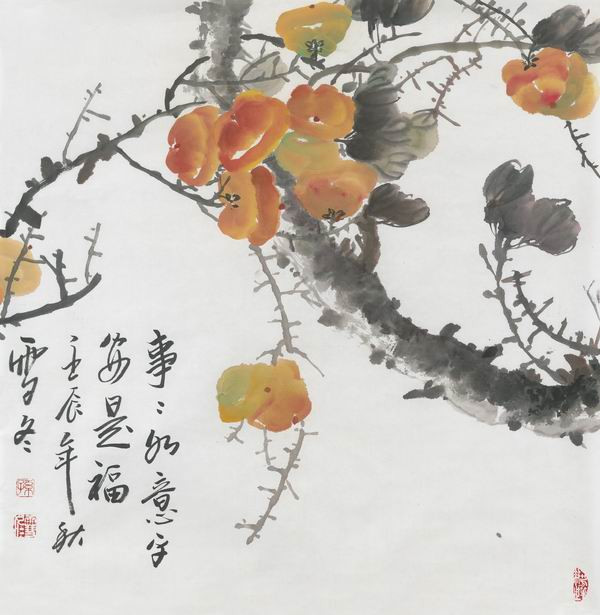 事〻如意平
安是福
壬辰年秋
雪冬